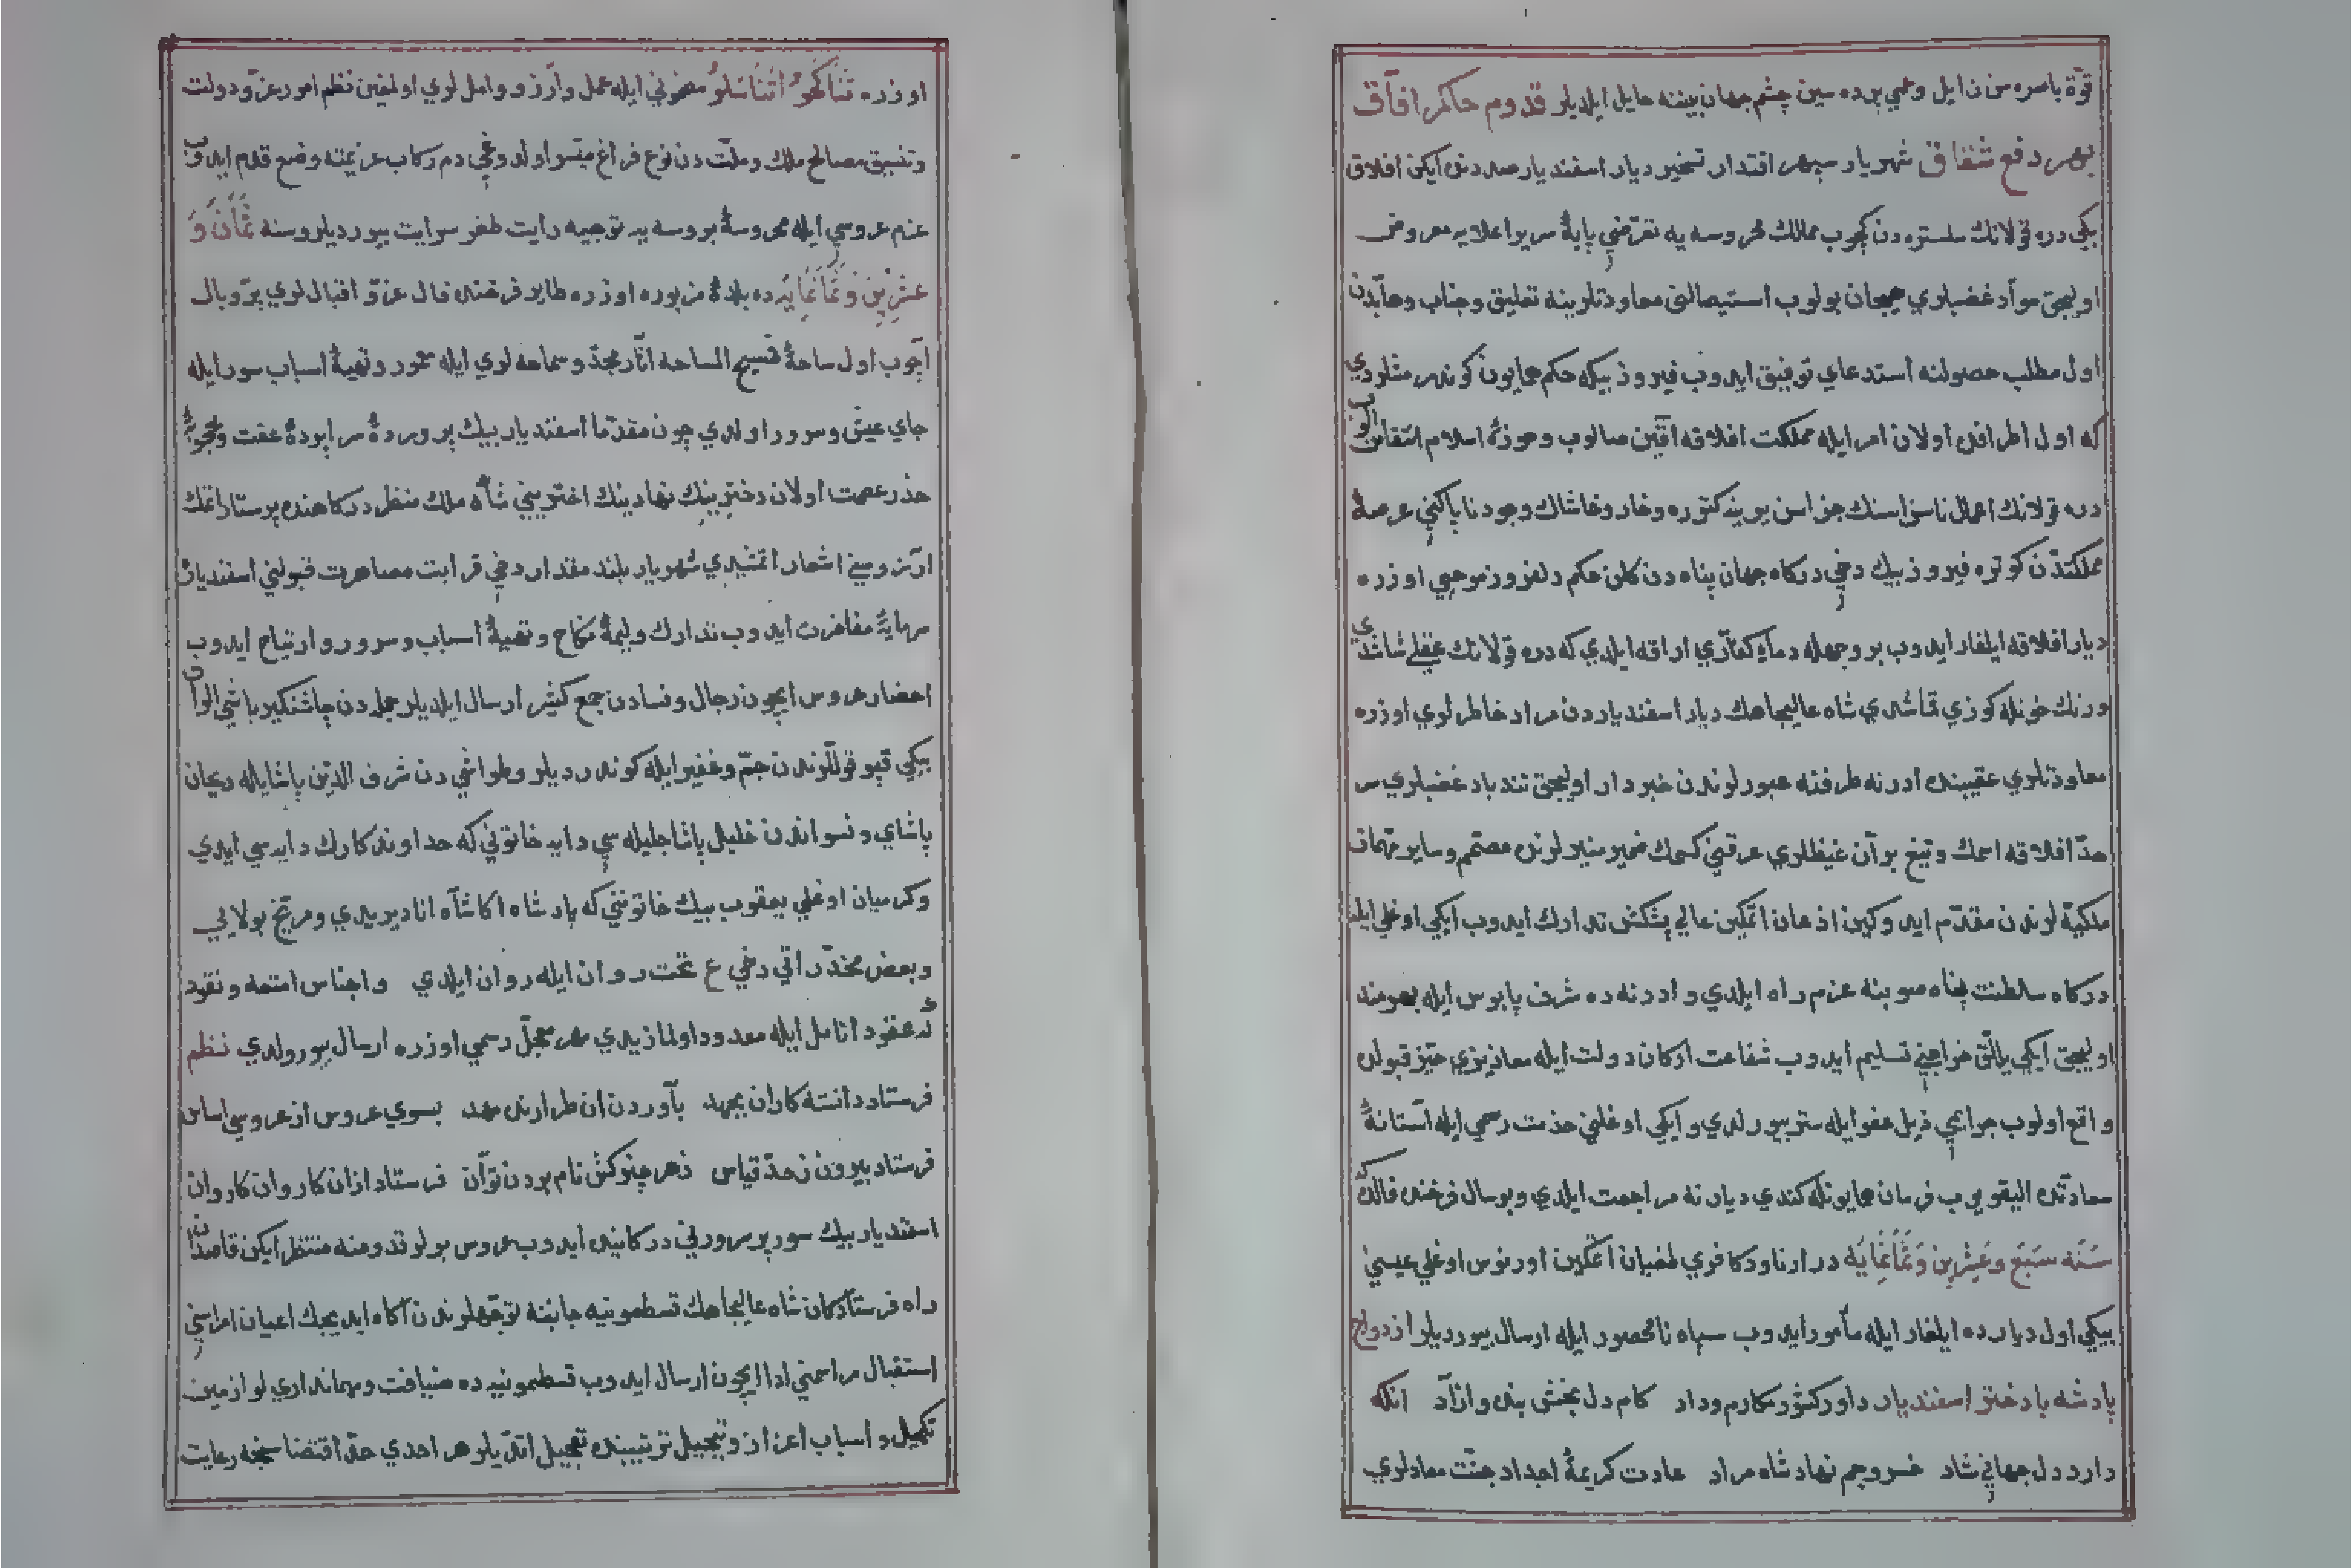 قوّة باصره سن زايل وعمي پرده سين چشم جهان بيننه حايل ايلديلر قدوم حاكم افاق
بهر دفع شقاق شهريار سپهر اقتدار تسخير ديار اسفنديار صددنده ايكن افلاق
بيكى دره قولانك سلستره دن كچوب ممالك محروسه يه تعرّضي پاية سرير اعلايه معروض
اوليجق موادّ غضبلري هيجان بولوب استيصالنى معاودتلرينه تعليق وجناب وهّابدن
اول مطلب حصولنه استدعاي توفيق ايدوب فيروز بيكه حكم همايون كوندرمشلردي
كه اول اطرافده اولان امرا ايله مملكت افلاقه آقين صالوب وحوزۀ اسلام انتقامن الوب
دره قولانك اعمال ناسزاسنك جزاسن يرينه كتوره وخار وخاشاك وجود ناپاكني عرصۀ
مملكتدن كوتره فيروز بيك دخي دركاه جهان پناه دن كلن حكم دلفروز موجبي اوزره
ديار افلاقه ايلغار ايدوب بر وجهله دماء كفاري اراقه ايلدي كه دره قولانك عقلي شاشدي
ورنك خونله كوزي قماشدي شاه عاليجاهك ديار اسفندياردن مراد خاطرلري اوزره
معاودتلري عقيبنده ادرنه طرفنه عبورلرندن خبردار اوليجق تندباد غضبلري سر
حدّ افلاقه اسمك وتيغ برّان غيظلري عرقني كسمك ضمير منيرلرنده مصمّم وساير مهمات
ملكيّه لرندن مقدّم ايدوكين اذعان اتمكين عالي پشكش تدارك ايدوب ايكي اوغلي ايله
دركاه سلطنت پناه صوبنه عزم راه ايلدي وادرنه ده شرف پابوس ايله بهرمند
اوليجق ايكي ييللق خراجني تسليم ايدوب شفاعت اركان دولت ايله معاذيري حيّز قبولده
واقع اولوب جرايمي ذيل عفو ايله ستر بيورلدي وايكي اوغلني خذمت رسمي ايله آستانۀ
سعادتده اليقويوب فرمان همايونله كندي ديارنه مراجعت ايلدي وبوسال فرخنده فالده كه
سَنَه سَبْع وعِشْرين وَثَمَانْمَايَه در ارناود كافري طغيان اتمكين اورنوس اوغلي عيسي
بيكي اول ديارده ايلغار ايله مأمور ايدوب سپاه نامحصور ايله ارسال بيورديلر ازدواج
پادشه با دختر اسفنديار داور كشور مكارم وداد كام دل بخش بنده وازاد انكه
دارد دل جهاني شاد خسرو جم نهاد شاه مراد عادت كريمۀ اجداد جنّت معادلري
اوزره تَنَاكَحُوا تَنَاسَلُوا مضموني ايله عمل وآرزو واملاري اولمغين نظم امور عزّ ودولت
وتنسيق مصالح ملك وملّت دن نوع فراغ ميسّر اولدوغي دم ركاب عزيمته وضع قدم ايدوب
عزم عروسي ايله محروسۀ بروسه يه توجيه رايت ظفر سرايت بيورديلر وسنه ثَمَانَ وَ
عِشْرِينَ وَثَمَانمَايَه ده بلدۀ مزبوره اوزره طاير فرخنده فال عزّ و اقبال لري پرّ وبال
آچوب اول ساحۀ فسيح المساحه اثار مجد وسماحه لري ايله معمور وتهيۀ اسباب سور ايله
جاي عيش وسرور اولدي چون مقدّما اسفنديار بيك پروردۀ سراپردۀ عفت ومحجوبۀ
خدر عصمت اولان دختر نيك نهادينك اختر بيني شاه ملك منظر دركاهنده پرستارانك
آرزوسنى اشعار اتمشيدي شهريار بلند مقدار دخي قرابت مصاهرت قبولني اسفنديار
سرمايۀ مفاخرت ايدوب تدارك وليمۀ نكاح وتهيۀ اسباب وسرور وارتياح ايدوب
احضار عروس ايچون رجال ونسادن جمع كثير ارسال ايلديلر جمله دن چاشنكير باشي الوان
بيكي قپو قوللرندن جمّ وغفير ايله كوندرديلر وطواشي دن شرف الدين پاشا ايله ريحان
پاشاي ونسواندن خليل پاشا جليله سي دايه خاتوني كه حداوندكارك دايه سي ايدي
وكرميان اوغلي يعقوب بيك خاتونني كه پادشاه اكا شاه انا ديريدي ومريخ بولايي
وبعض مخدّراتي دخي ع تحت روان ايله روان ايلدي واجناس امتعه ونقود
ئد عقود انامل ايله معدود اولمازيدي مهر معجّل رسمي اوزره ارسال بيورولدي نظم
فرستاد دانسته كاران بجهد بآوردن ان طرازنده مهد بسوي عروس از عروسي اساس
فرستاد بيرون زحدّ قياس زهر چنر كش نام بردن توان فرستاد ازان كاروان كاروان
اسفنديار بيك سور پرسروري دركارنده ايدوب عروس برلو قدومنه منتظر ايكن قاصدان
راه فرستادكان شاه عاليجاهك قسطمونيه جانبنه توجّهلرندن آكاه ايديجك اعيان امراسني
استقبال مراسمني ادا ايچون ارسال ايدوب قسطمونيه ده ضيافت ومهمانداري لوازمين
تكميل واسباب اعزاز وتبجيل ترتيبنده تعجيل اتديلر هر احدي حدّ اقتضا سنجه رعايت